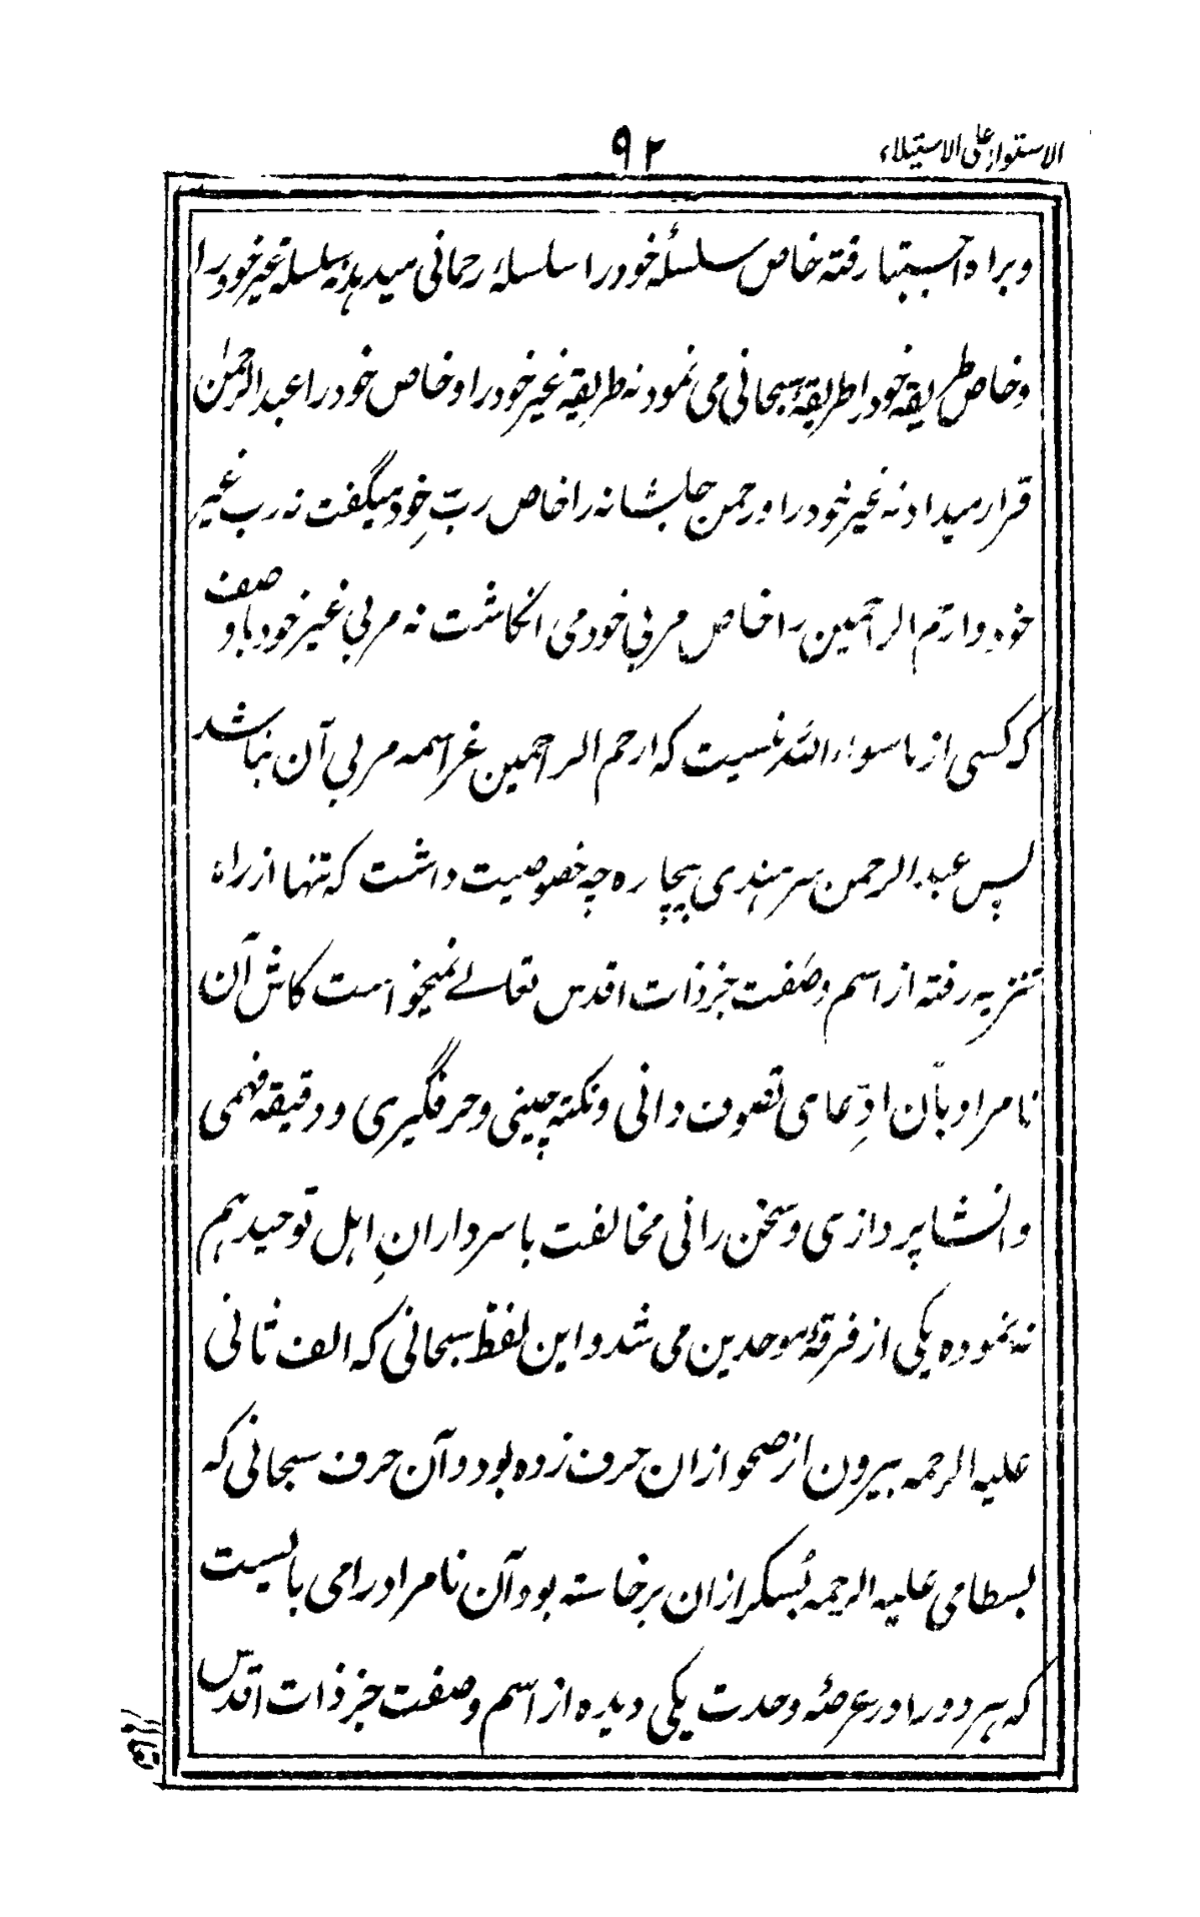 الاستواء علی الاستیلاء
۹۲
وبراه اجتبا رفته خاص سلسلهٔ خود را سلسلهٔ رحمانی میداند نه سلسلهٔ غیر خود را
وخاص طریقه خود را طریقهٔ سبحانی می نمود نه طریقهٔ غیر خود را وخاص خود را عبدالرحمٰن
قرار میداد نه غیر خود را ورحمن جلشانه را خاص ربِّ خود میگفت نه رب غیر
خود وارحم الراحمین را خاص مربی خود می انگاشت نه مربی غیر خود با وصف
که کسی از ماسواء اللّٰه نیست که ارحم الراحمین عز اسمه مربی آن نباشد
پس عبدالرحمن سرہندی بیچاره چه خصوصیت داشت که تنها از راه
تنزیه رفته از اسم وصفت جز ذات اقدس تعالے نمیخواست کاش آن
نامراد بآن ادِّعای تصوف دانی ونکته چینی وحرفگیری ودقیقه فهمی
وانشا پردازی وسخن رانی مخالفت با سردارانِ اہل توحید ہم
نه نموده یکی از فرقهٔ موحدین می شد واین لفظ سبحانی که الف ثانی
علیه الرحمه بیرون از صحو ازان حرف زده بود وآن حرف سبحانی که
بسطامی علیه الرحمه بُسکر ازان برخاسته بود آن نامراد را می بایست
که ہر دو را در عرصهٔ وحدت یکی دیده از اسم وصفت جز ذات اقدس